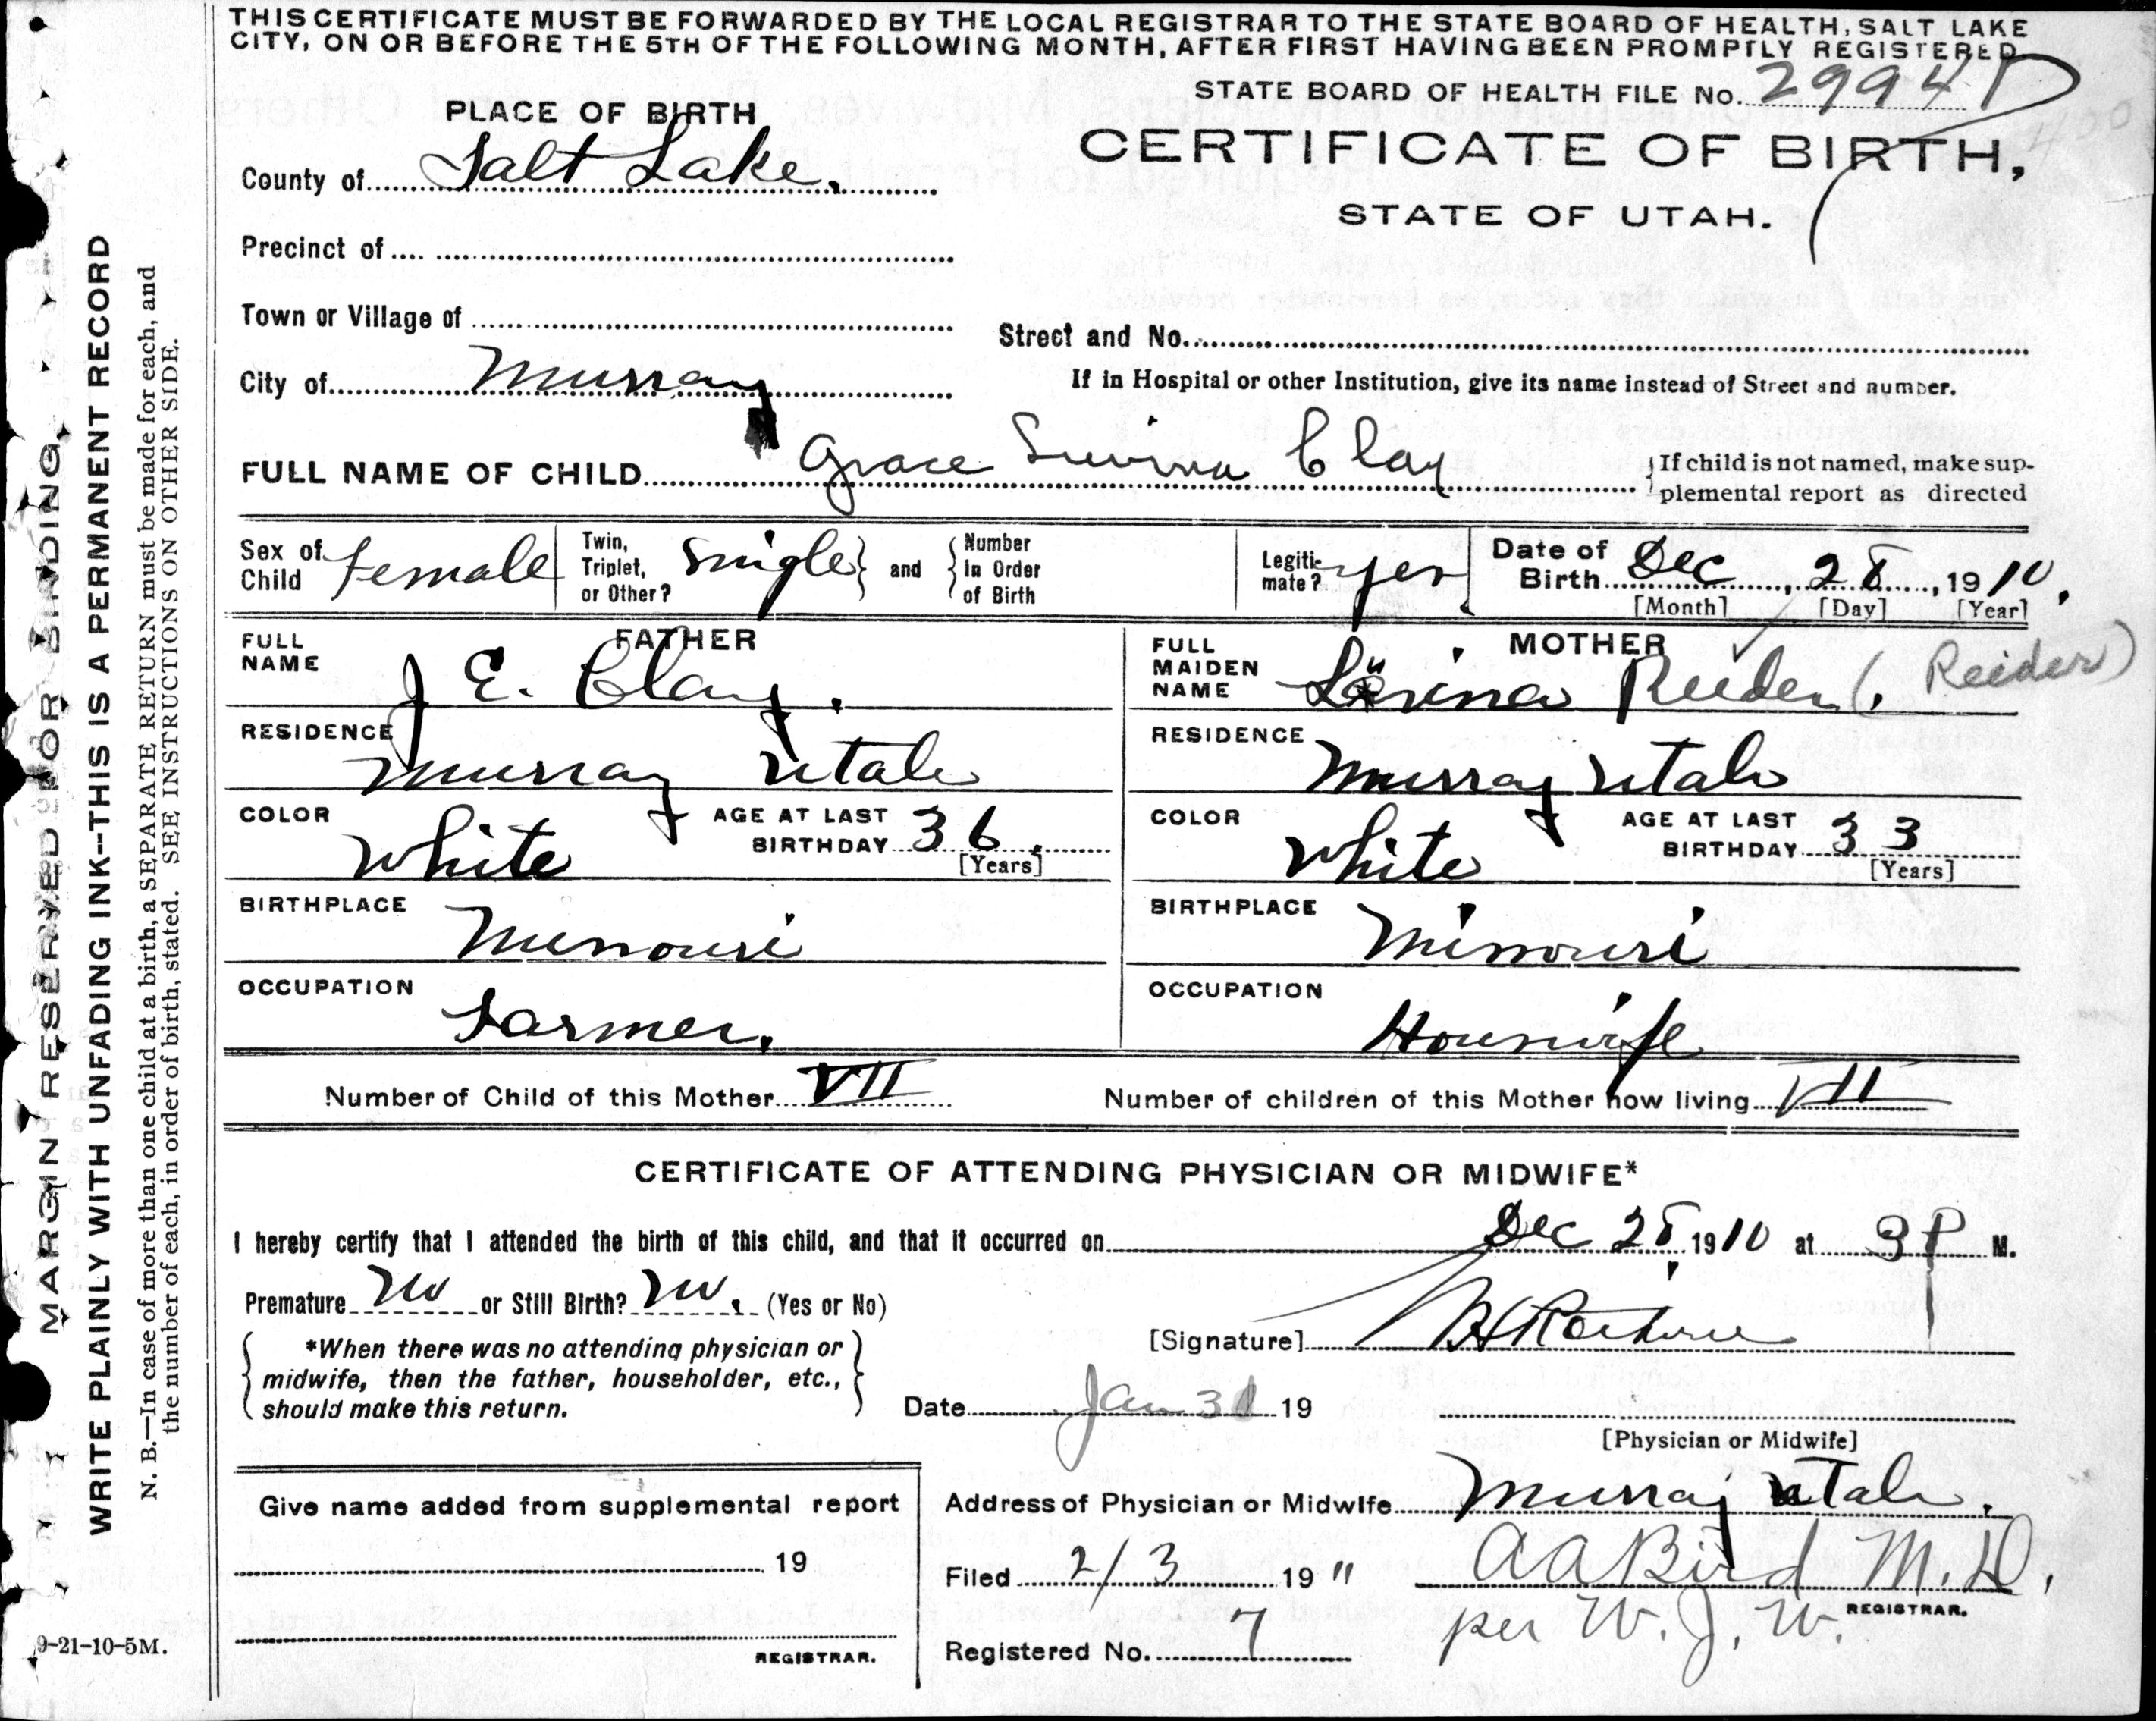 THIS CERTIFICATE MUST BE FORWARDED BY THE LOCAL REGISTRAR TO THE STATE BOARD OF HEALTH, SALT LAKE
CITY, ON OR BEFORE THE 5TH OF THE FOLLOWING MONTH, AFTER FIRST HAVING BEEN PROMPTLY REGISTERED
STATE BOARD OF HEALTH FILE No. 2994 D
PLACE OF BIRTH
CERTIFICATE OF BIRTH,
County of Salt Lake.
STATE OF UTAH.
Precinct of
Town or Village of
Street and No.
City of Murray
If in Hospital or other Institution, give its name instead of Street and number.
FULL NAME OF CHILD Grace Clay
{If child is not named, make sup-
plemental report as directed
Sex of Child Female
Twin, Triplet, or Other? Single } and { Number In Order of Birth
Legiti-mate? yes
Date of Birth Dec, 28, 1910.
[Month] [Day] [Year]
FATHER
FULL NAME J E. Clay.
RESIDENCE Murray Utah
COLOR White
AGE AT LAST BIRTHDAY 36.
[Years]
BIRTHPLACE Missouri
OCCUPATION Farmer.
MOTHER
FULL MAIDEN NAME Reider (Reider)
RESIDENCE Murray Utah
COLOR White
AGE AT LAST BIRTHDAY 33
[Years]
BIRTHPLACE Missouri
OCCUPATION Houswife
Number of Child of this Mother VII
Number of children of this Mother now living VII
CERTIFICATE OF ATTENDING PHYSICIAN OR MIDWIFE*
I hereby certify that I attended the birth of this child, and that it occurred on Dec 28 1910 at 3 P M.
Premature No or Still Birth? No. (Yes or No)
{ *When there was no attending physician or
midwife, then the father, householder, etc.,
should make this return. }
[Signature]
Date Jan 31 19
[Physician or Midwife]
Give name added from supplemental report
19
REGISTRAR.
Address of Physician or Midwife Murray Utah.
Filed 2/3 19 11
A A Bird M.D.
REGISTRAR.
per W. J. W.
Registered No. 7
9-21-10-5M.
MARGIN RESERVED FOR BINDING.
WRITE PLAINLY WITH UNFADING INK--THIS IS A PERMANENT RECORD
N. B.—In case of more than one child at a birth, a SEPARATE RETURN must be made for each, and
the number of each, in order of birth, stated. SEE INSTRUCTIONS ON OTHER SIDE.